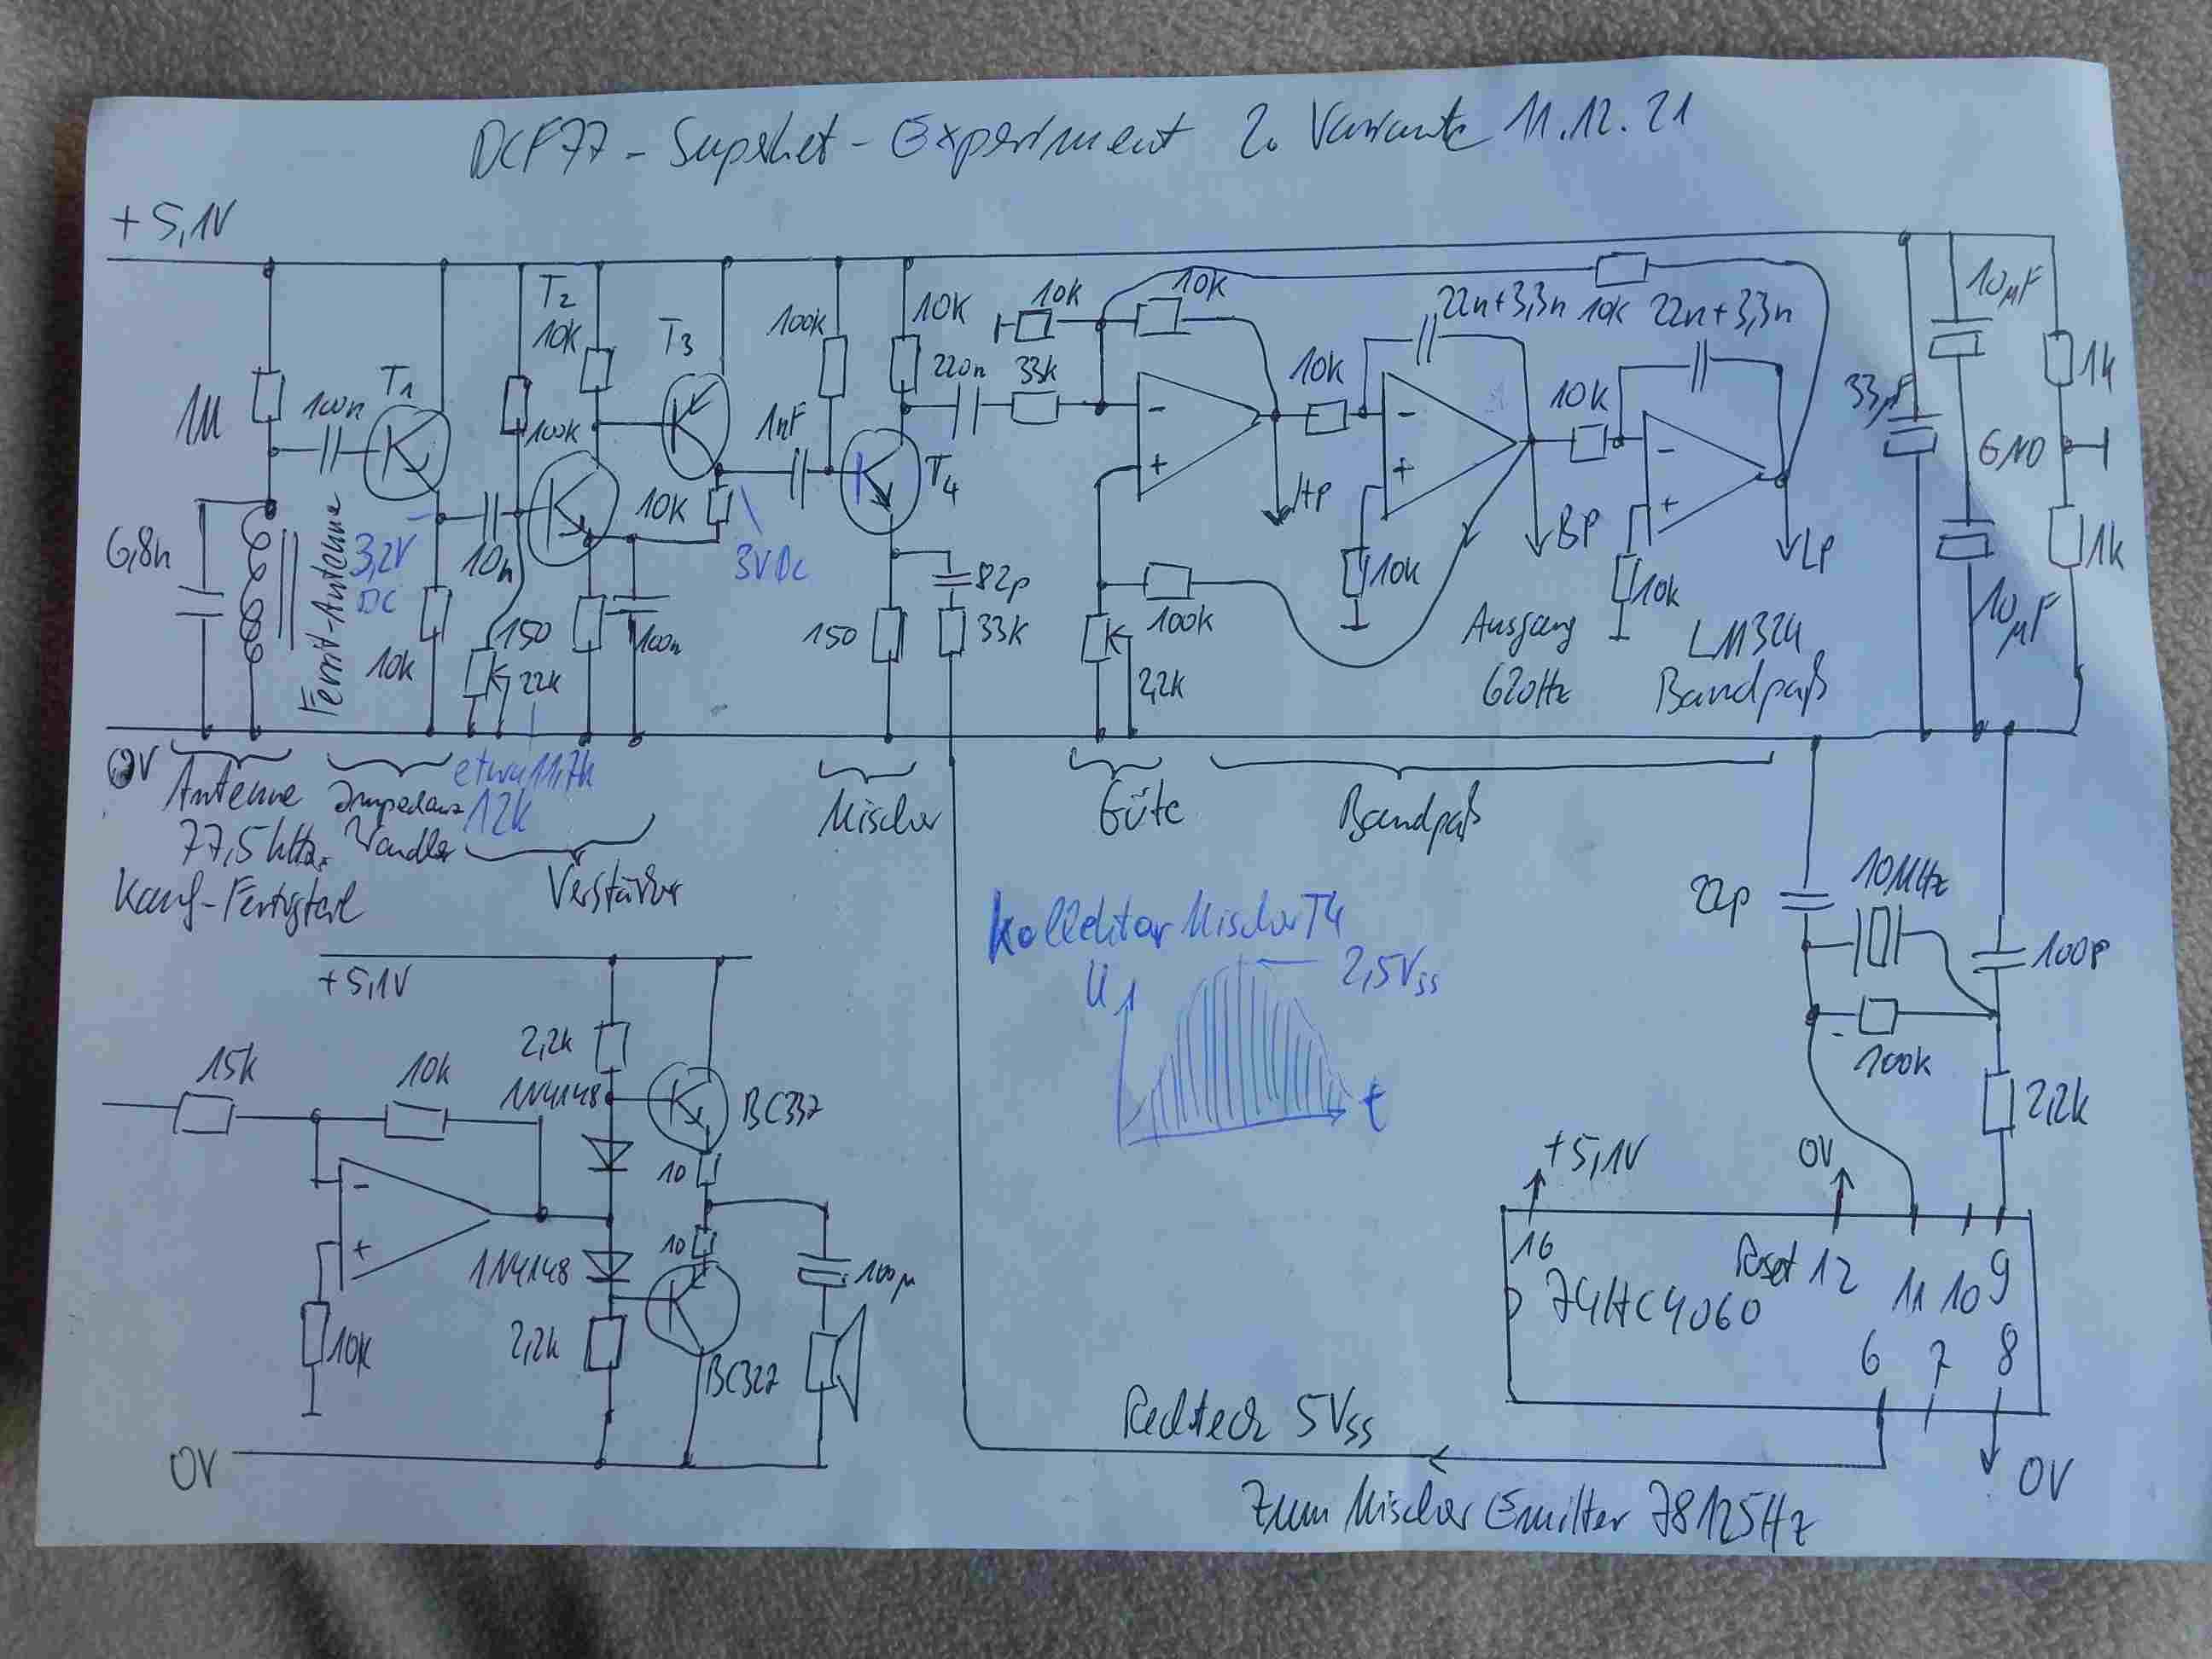 DCF77 - Superhet - Experiment 2. Variante 11.12.21
+5,1V
1M
100n
T1
6,8n
Ferrit-Antenne
3,2V
DC
10n
10k
T2
10k
100k
150
22k
100n
T3
10k
3VDC
100k
1nF
10k
T4
220n
33k
150
82p
33K
10k
10k
HP
100k
2,2k
10k
22n+3,3n
10k
22n+3,3n
10k
BP
10k
10k
LP
Ausgang
620Hz
LM324
Bandpaß
33µF
10µF
GND
10µF
1k
1k
0V
Antenne
77,5kHz.
Kauf-Fertigteil
Impedanz
Wandler
etwa 11,7k
12k
Verstärker
Mischer
Güte
Bandpaß
Kollektor Mischer T4
U
2,5Vss
t
22p
10MHz
100p
100k
2,2k
+5,1V
0V
16
Reset 12
11 10 9
74HC4060
6 7 8
0V
Rechteck 5Vss
Zum Mischer Emitter 78125Hz
+5,1V
15k
10k
2,2k
1N4148
BC337
10
10
1N4148
100µ
10k
2,2k
BC327
0V